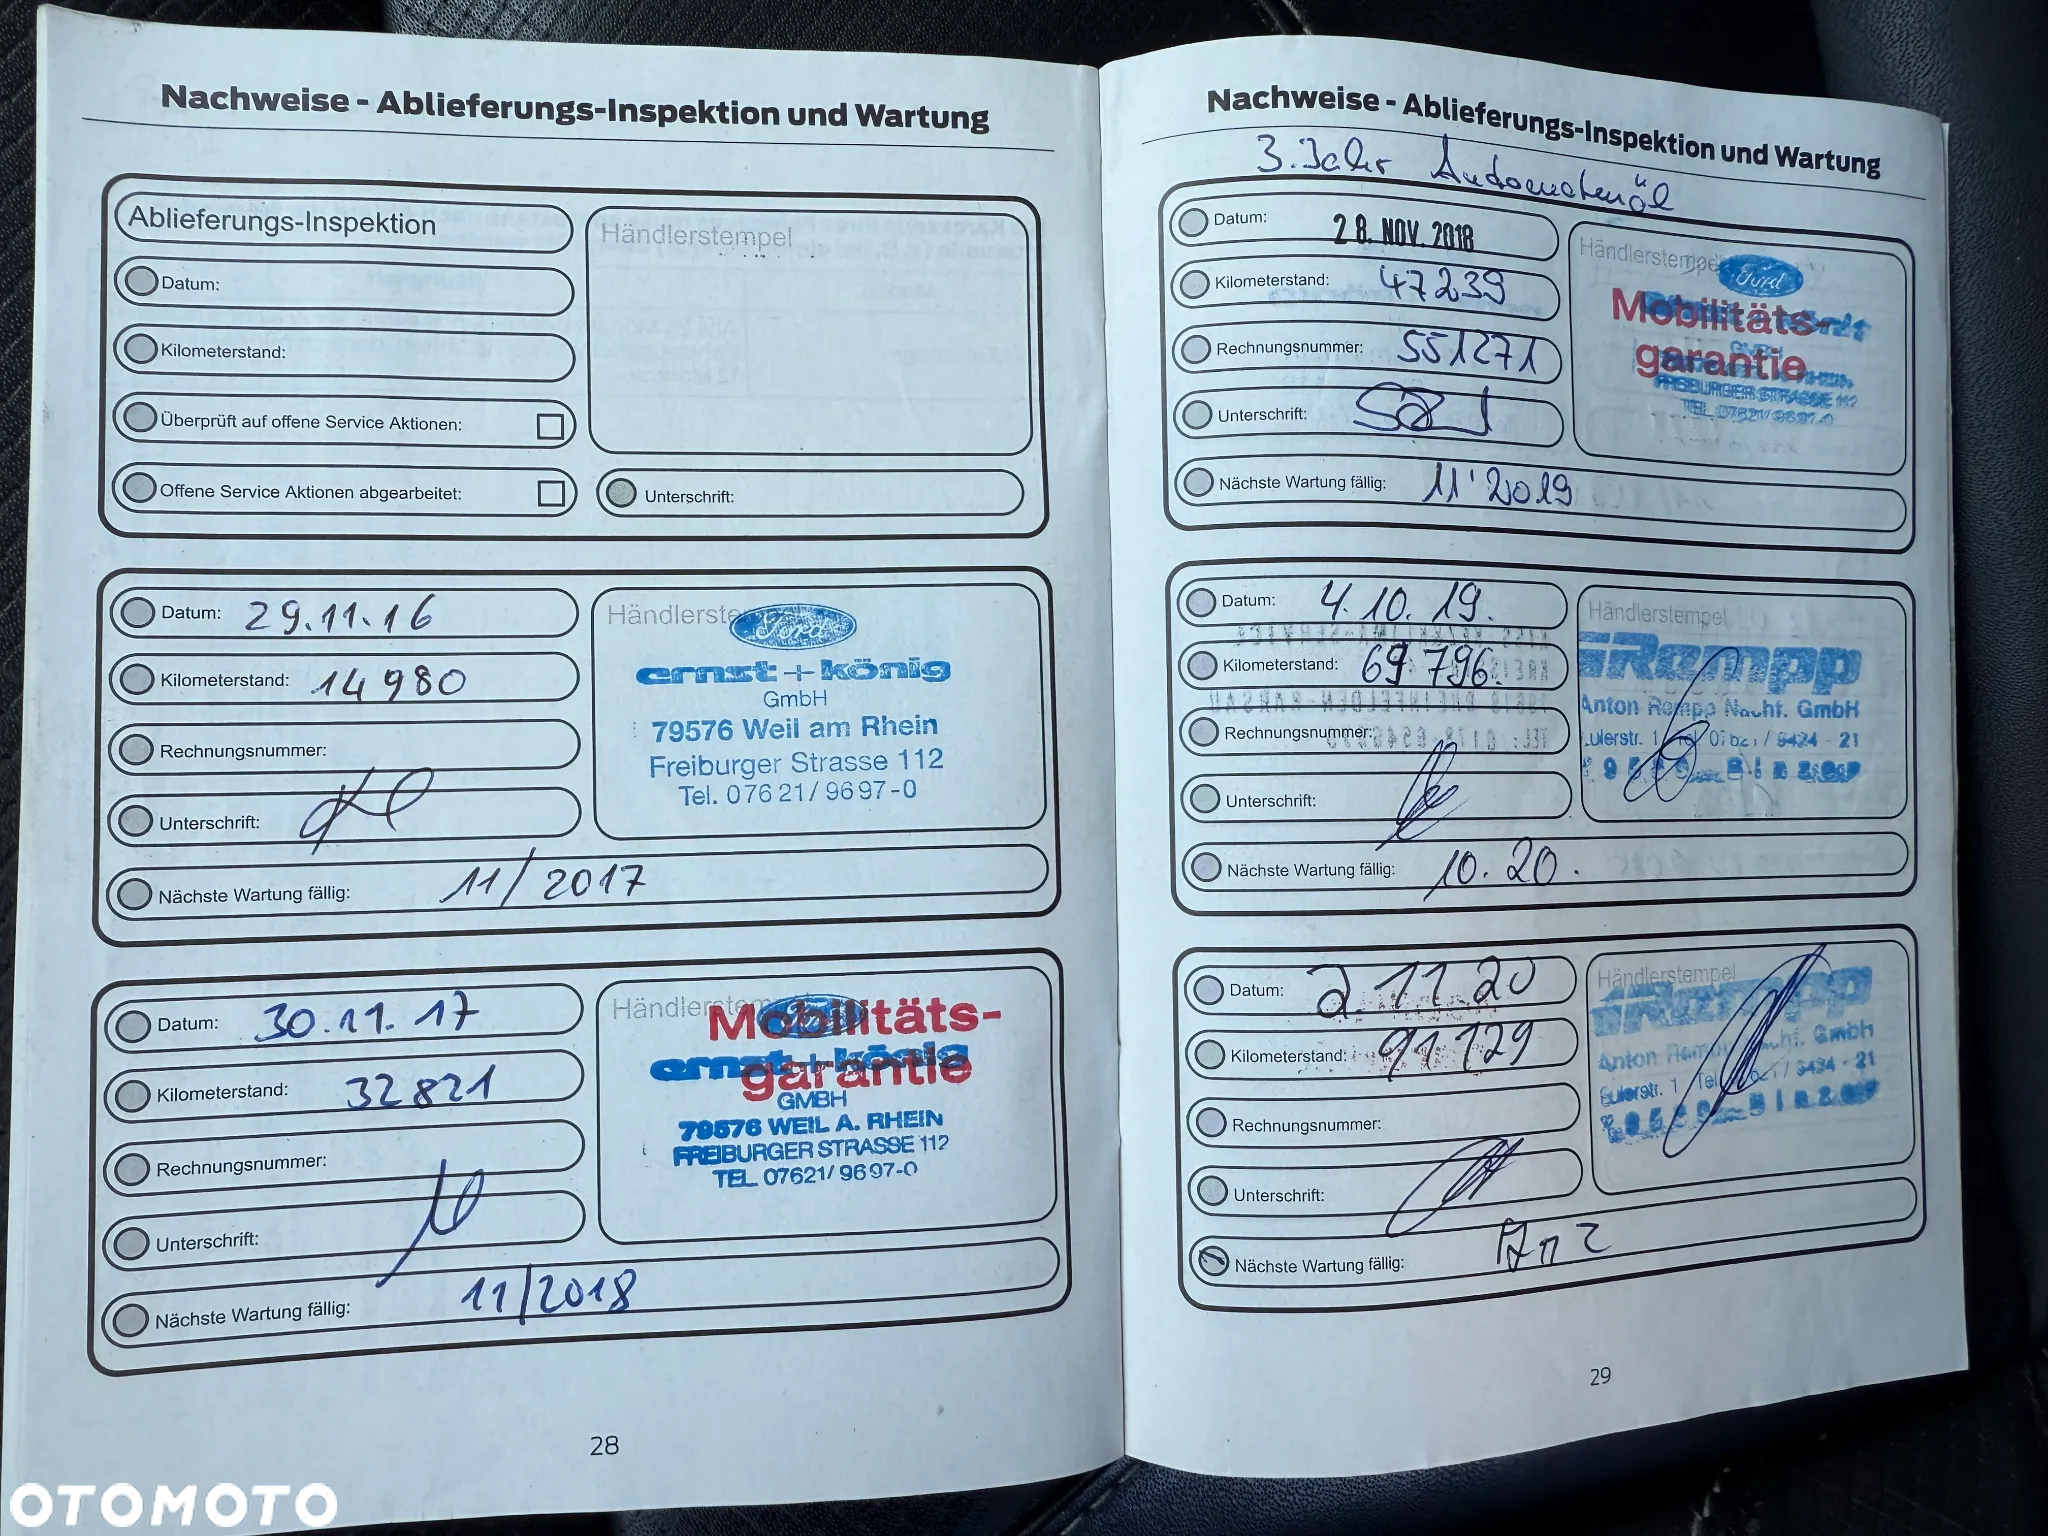 Nachweise - Ablieferungs-Inspektion und Wartung
Ablieferungs-Inspektion
Händlerstempel
Datum:
Kilometerstand:
Überprüft auf offene Service Aktionen:
Offene Service Aktionen abgearbeitet:
Unterschrift:
Datum: 29.11.16
Kilometerstand: 14980
Rechnungsnummer:
Unterschrift:
Nächste Wartung fällig: 11/2017
Händlerstempel
Ford
ernst + könig
GmbH
79576 Weil am Rhein
Freiburger Strasse 112
Tel. 07621/9697-0
Datum: 30.11.17
Kilometerstand: 32821
Rechnungsnummer:
Unterschrift:
Nächste Wartung fällig: 11/2018
Händlerstempel
Ford
Mobilitäts-
ernst + könig
garantie
GMBH
79576 WEIL A. RHEIN
FREIBURGER STRASSE 112
TEL. 07621/9697-0
28
Nachweise - Ablieferungs-Inspektion und Wartung
3. Jahr Automatenöl
Datum: 28. NOV. 2018
Kilometerstand: 47239
Rechnungsnummer: 551271
Unterschrift:
Nächste Wartung fällig: 11'2019
Händlerstempel
Ford
Mobilitäts-
garantie
GMBH
FREIBURGER STRASSE 112
TEL. 07621/9697-0
Datum: 4.10.19.
Kilometerstand: 69796.
Rechnungsnummer:
Unterschrift:
Nächste Wartung fällig: 10.20.
Händlerstempel
Rempp
Anton Rempp Nachf. GmbH
Eulerstr. 1 Tel. 07621/9424-21
Datum: 2 11 20
Kilometerstand: 91129
Rechnungsnummer:
Unterschrift:
Nächste Wartung fällig:
Händlerstempel
Rempp
Anton Rempp Nachf. GmbH
Eulerstr. 1 Tel. 07621/9424-21
29
OTOMOTO